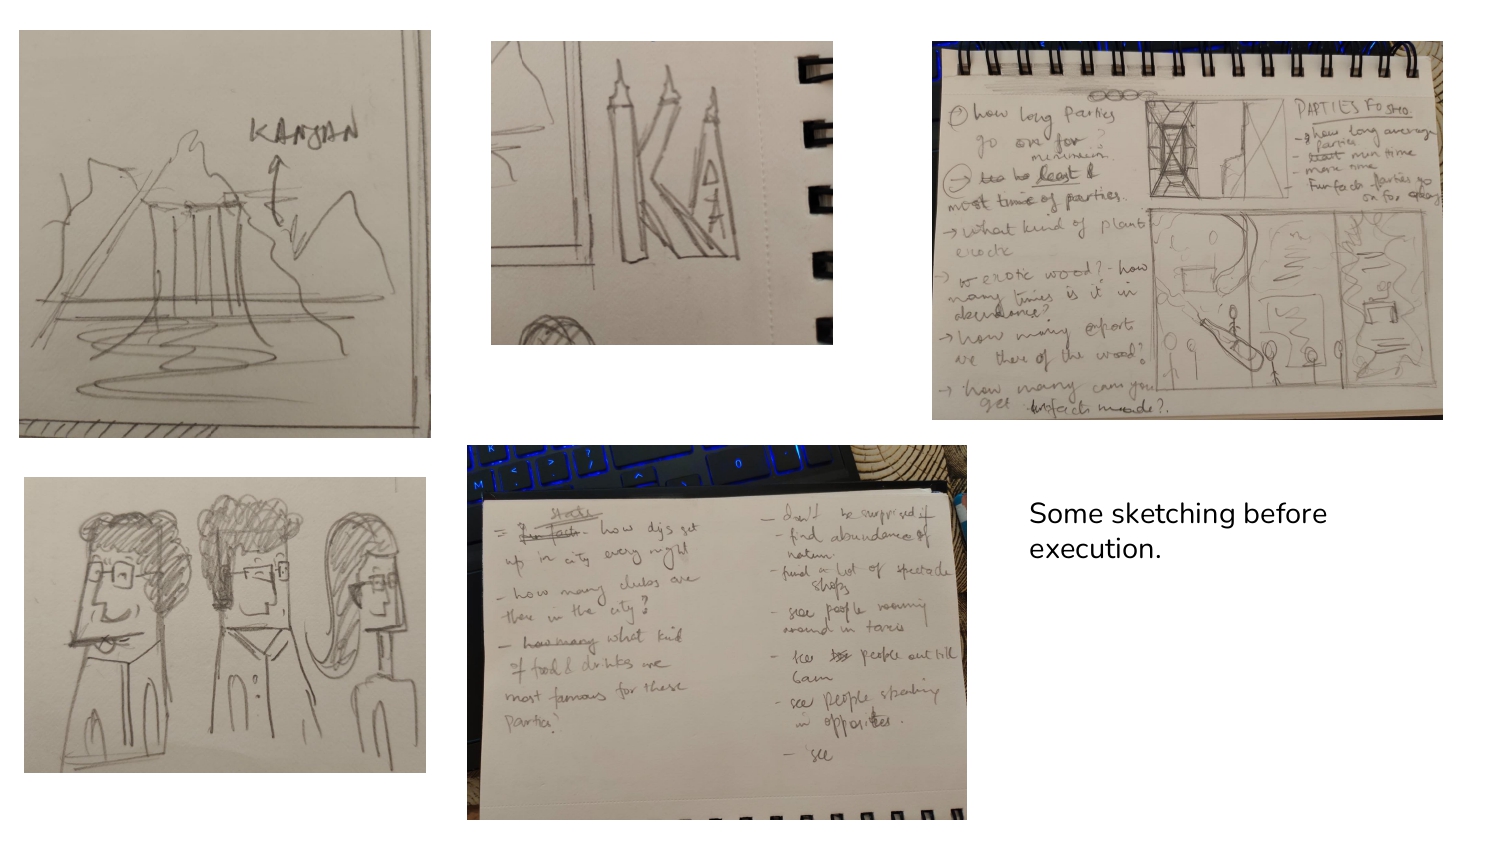 KANJAN
KA
how long Parties
go on for?
minimum.
least &
most time of parties.
→ What kind of plants
exotic
→ exotic wood? - how
many times is it in
abundance?
→ how many export
are there of the wood?
→ how many can you
get artifacts made?.
PARTIES Fo
how long average
parties
min time
- more time
- Funfact - parties go
on for
how djs get
up in city every night
- how many clubs are
there in the city?
- how many what kind
of food & drinks are
most famous for these
Parties?
- don't be surprised if
- find abundance of
nature.
- find a lot of spectacle
shops
- see people roaming
around in taxis
- see people out till
6am
- see people speaking
in opposites.
- see
Some sketching before
execution.